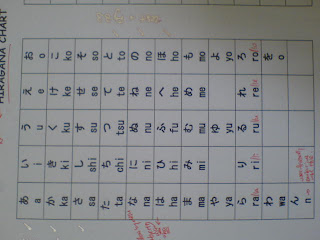 HIRAGANA CHART
あ a い i う u え e お o
か ka き ki く ku け ke こ ko
さ sa し shi す su せ se そ so
た ta ち chi つ tsu て te と to
な na に ni ぬ nu ね ne の no
は ha ひ hi ふ fu へ he ほ ho
ま ma み mi む mu め me も mo
や ya ゆ yu よ yo
ら ra り ri る ru れ re ろ ro
わ wa を o
ん n